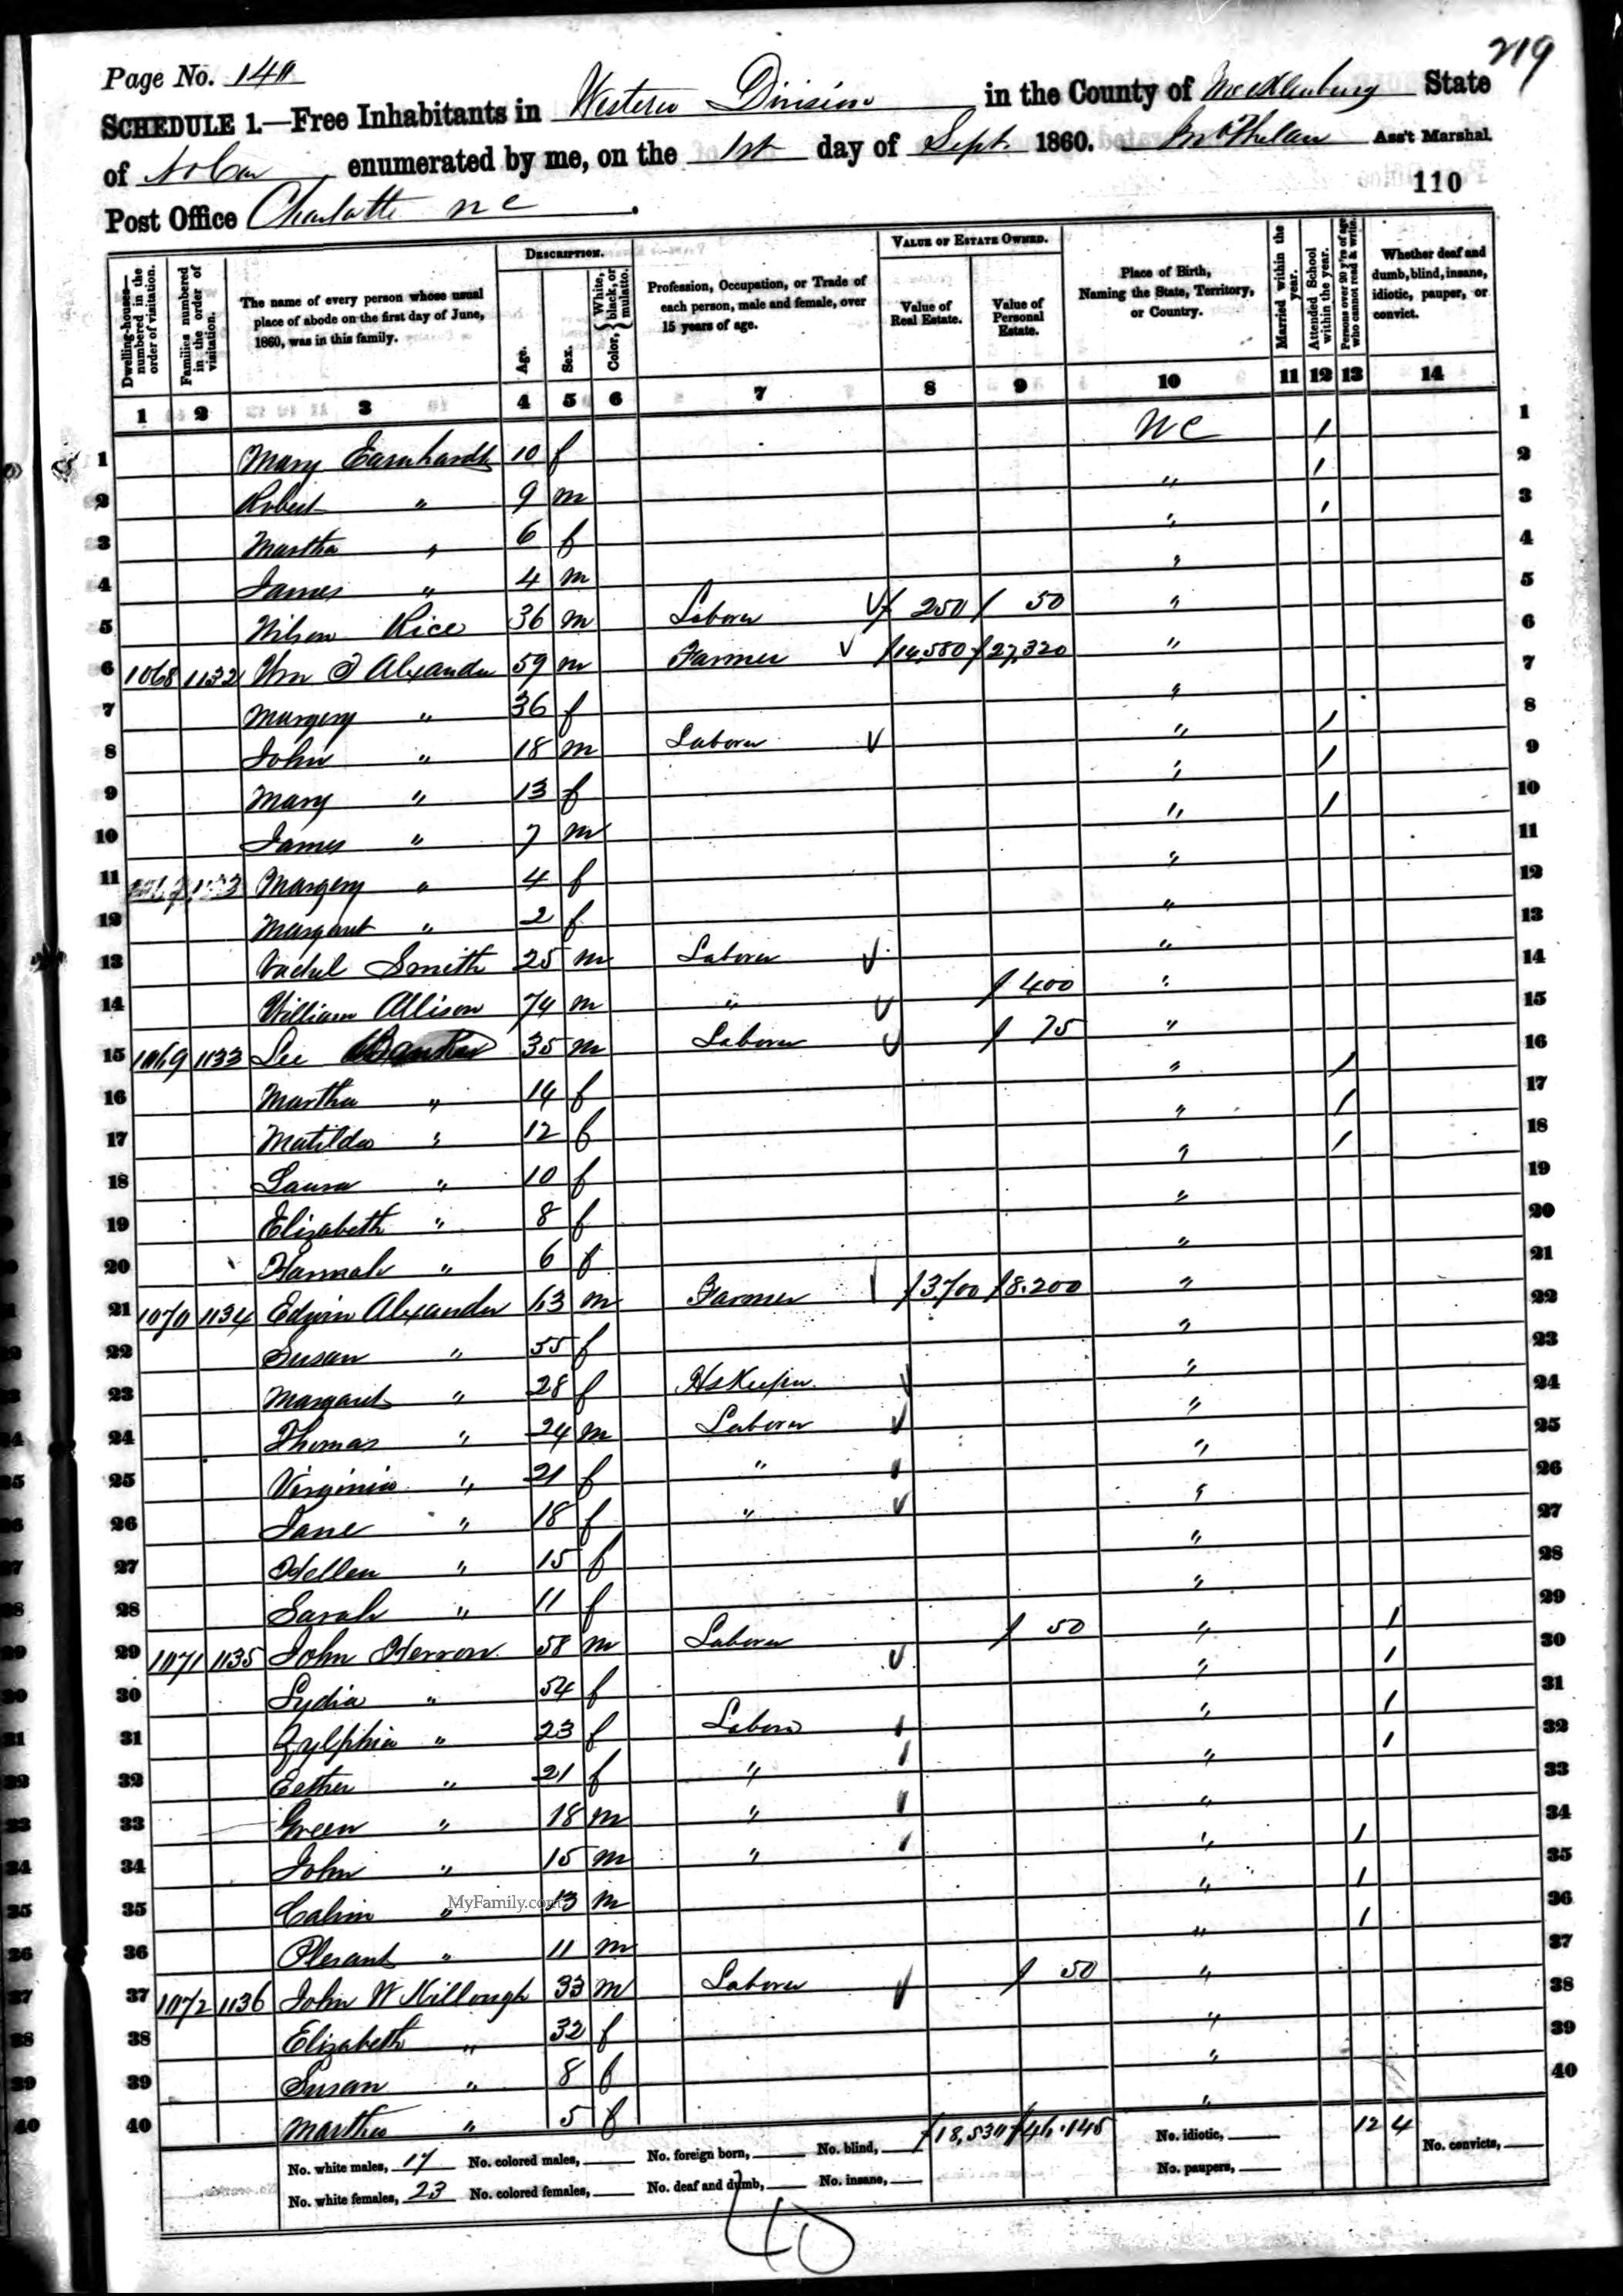 219
Page No. 140
SCHEDULE 1.—Free Inhabitants in Western Division in the County of Mecklenburg State
of No Car enumerated by me, on the 1st day of Sept. 1860. Ass't Marshal.
110
Post Office Charlotte NC.
Dwelling-houses—numbered in the order of visitation. Families numbered in the order of visitation. The name of every person whose usual place of abode on the first day of June, 1860, was in this family. DESCRIPTION. Age. Sex. Color, {White, black, or mulatto. Profession, Occupation, or Trade of each person, male and female, over 15 years of age. VALUE OF ESTATE OWNED. Value of Real Estate. Value of Personal Estate. Place of Birth, Naming the State, Territory, or Country. Married within the year. Attended School within the year. Persons over 20 y'rs of age who cannot read & write. Whether deaf and dumb, blind, insane, idiotic, pauper, or convict.
1 2 3 4 5 6 7 8 9 10 11 12 13 14
1 Mary Earnhardt 10 f NC / 1
2 Robert " 9 m " / 2
3 Martha " 6 f " / 3
4 James " 4 m " 4
5 Wilson Rice 36 m Laborer 250 50 " 5
6 1068 1132 Wm Alexander 59 m Farmer 14,580 27,320 " 6
7 Margery " 36 f " 7
8 John " 18 m Laborer " / 8
9 Mary " 13 f " / 9
10 James " 7 m " / 10
11 1133 Margery " 4 f " 11
12 Margaret " 2 f " 12
13 Smith 25 m Laborer " 13
14 William Allison 74 m " 400 " 14
15 1069 1133 Lee 35 m Laborer 75 " 15
16 Martha " 14 f " / 16
17 Matilda " 12 f " / 17
18 Laura " 10 f " / 18
19 Elizabeth " 8 f " 19
20 Hannah " 6 f " 20
21 1070 1134 Edwin Alexander 63 m Farmer 3700 8.200 " 21
22 Susan " 55 f " 22
23 Margaret " 28 f HsKeeper " 23
24 Thomas " 24 m Laborer " 24
25 Virginia " 21 f " " 25
26 Jane " 18 f " " 26
27 Hellen " 15 f " 27
28 Sarah " 11 f " 28
29 1071 1135 John Herron 58 m Laborer 50 " / 29
30 Lydia " 54 f " / 30
31 Zylphia " 23 f Labor " / 31
32 Esther " 21 f " " / 32
33 Green " 18 m " " 33
34 John " 15 m " " / 34
35 Calvin " 13 m " / 35
36 Plesant " 11 m " / 36
37 1072 1136 John W Killough 33 m Laborer 50 " 37
38 Elizabeth " 32 f " 38
39 Susan " 8 f " 39
40 Martha " 5 f " 40
MyFamily.com
18,530 46.145 12 4
No. white males, 17 No. colored males, No. foreign born, No. blind, No. idiotic, No. convicts,
No. white females, 23 No. colored females, No. deaf and dumb, No. insane, No. paupers,
40